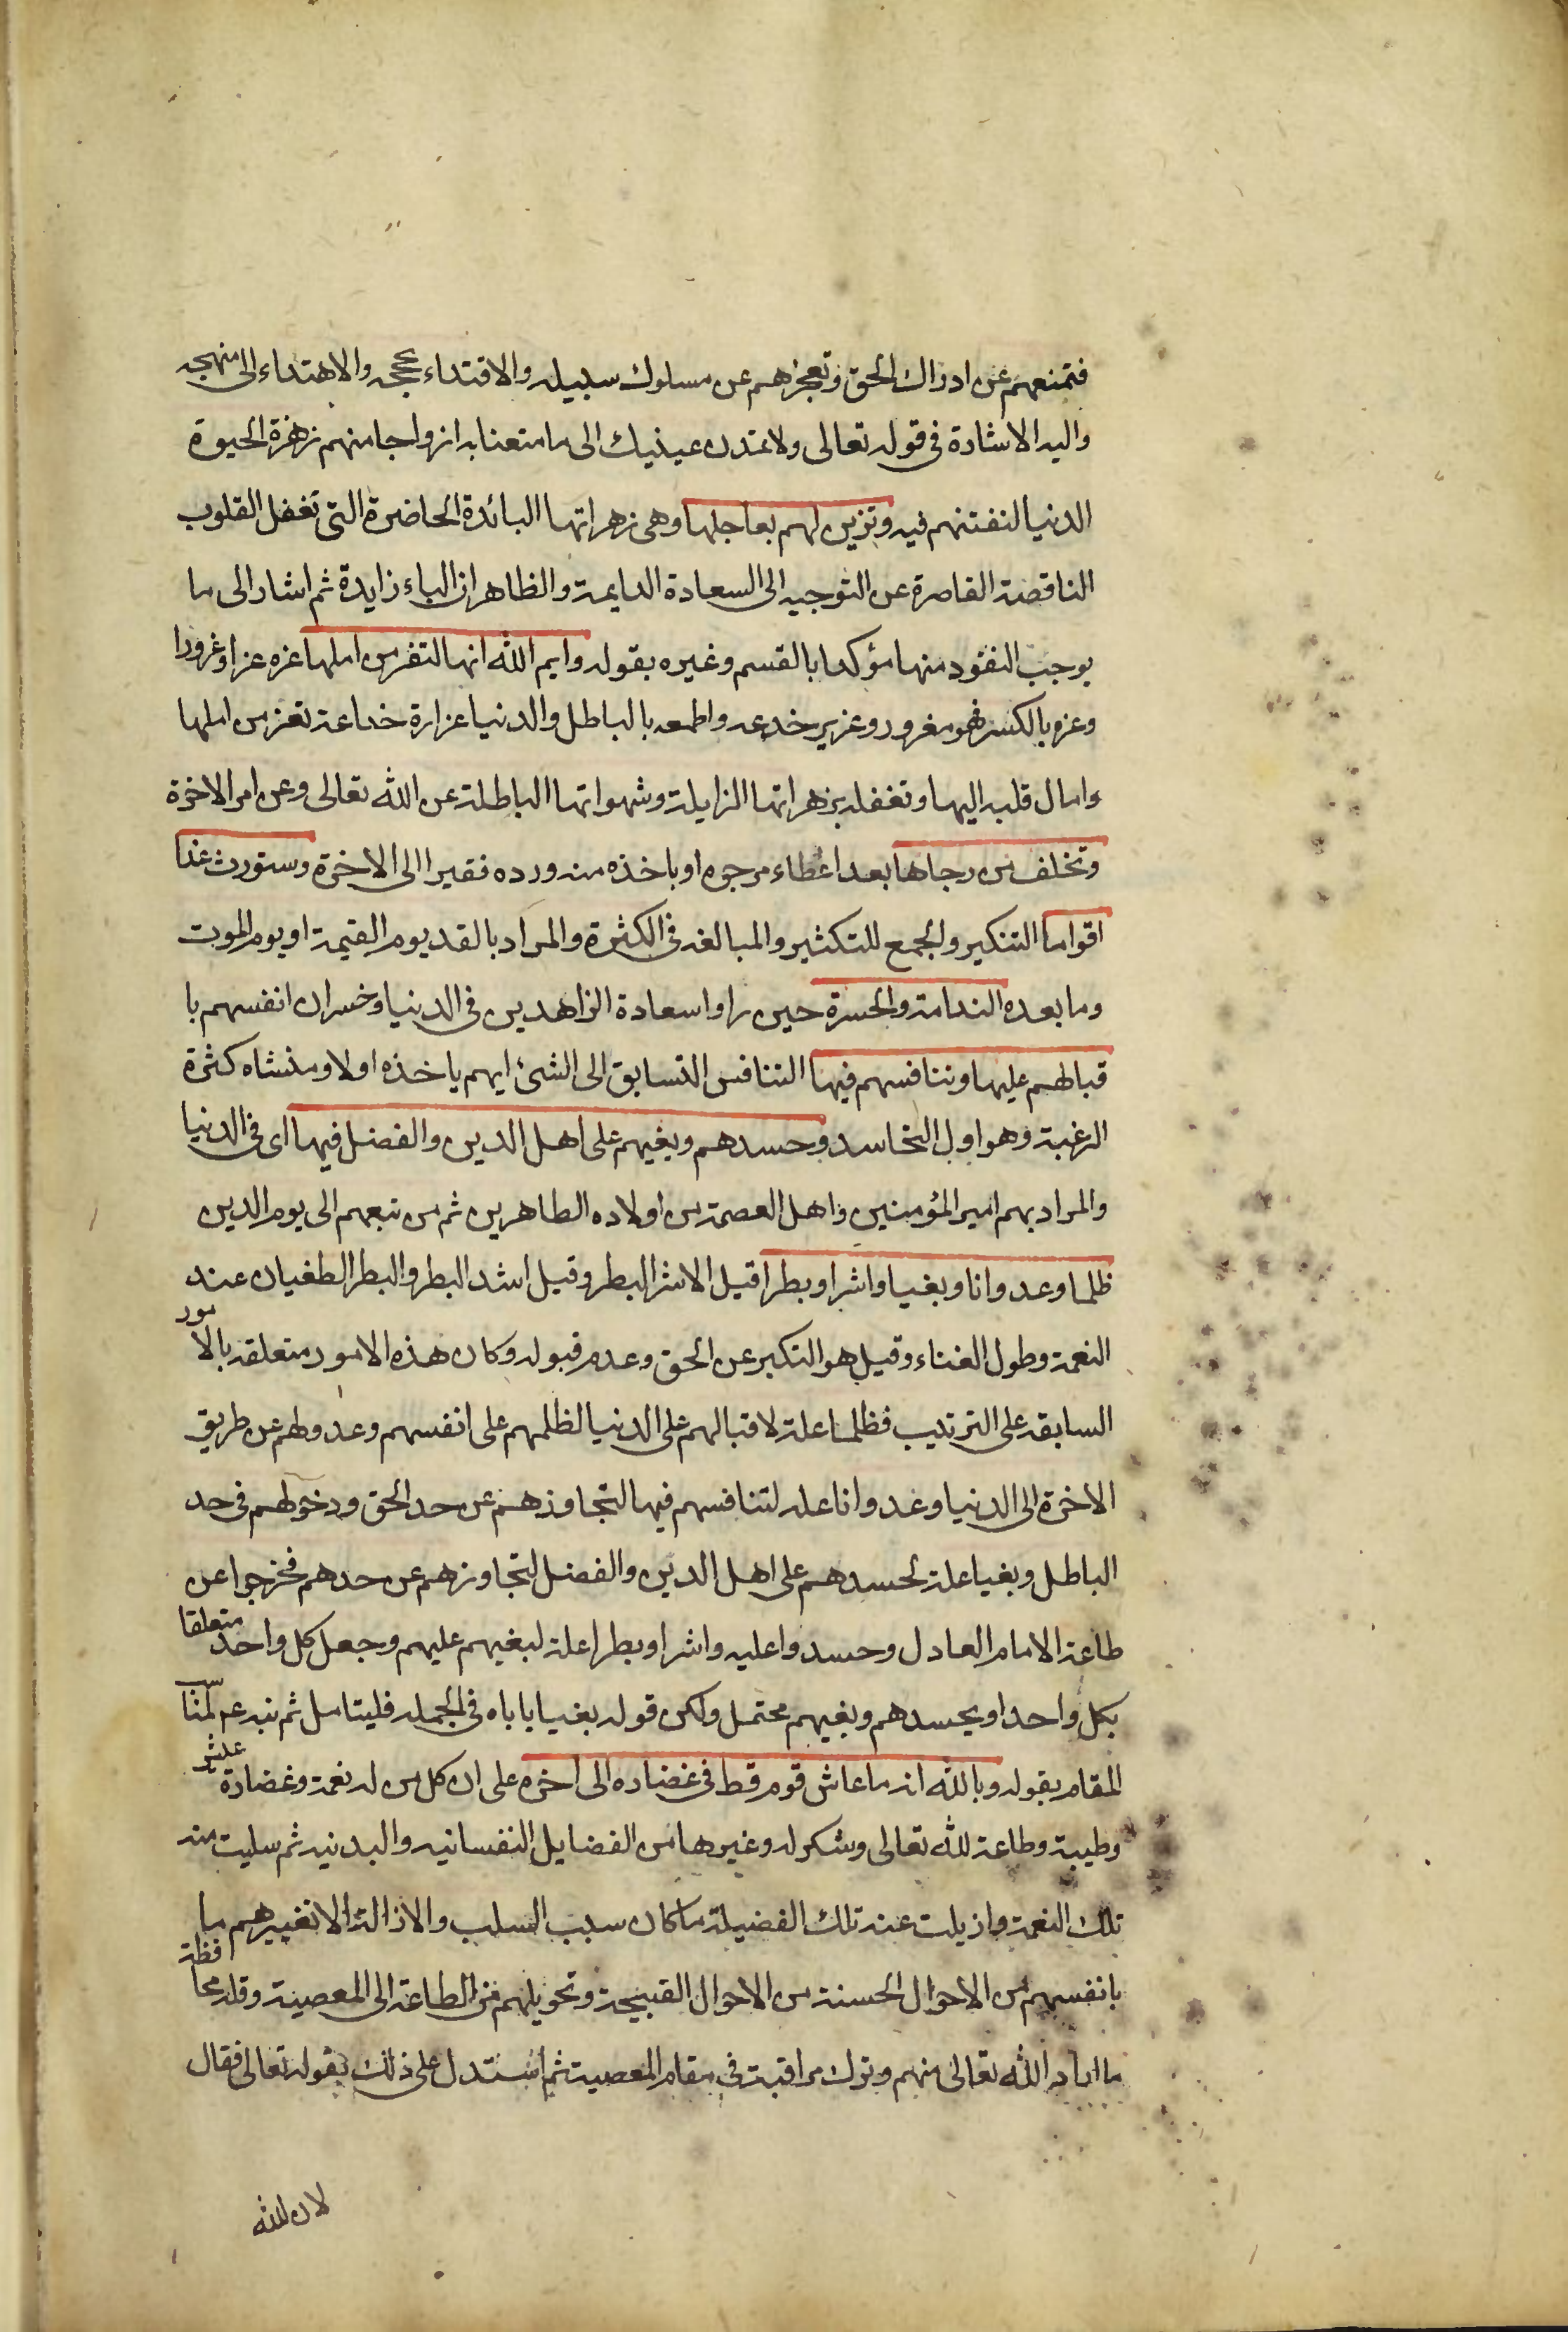 فتمنعهم عن ادراك الحق وتعجزهم عن مسلوك سبيله والاقتداء بحججه والاهتداء الى منهجه
واليه الاشارة فى قوله تعالى ولا تمتدن عينيك الى ما متعنا به ازواجا منهم زهرة الحيوة
الدنيا لنفتنهم فيه وتزين لهم بعاجلها وهى زهراتها البائدة الحاضرة التى تغفل القلوب
الناقصة القاصرة عن التوجيه الى السعادة الدايمة والظاهر ان الباء زايدة ثم اشار الى ما
يوجب النفود منها مؤكدا بالقسم وغيره بقوله وايم الله انها لتغر من املها غره غرا وغرورا
وغره بالكسر فهو مغرور وغرير خدعه واطمعه بالباطل والدنيا غرارة خداعة تغر من املها
وامال قلبه اليها وتغفله بزهراتها الزايلة وشهواتها الباطلة عن الله تعالى وعن امر الاخرة
وتخلف من رجاها بعد اعطاء مرجوه او باخذه منه ورده فقيرا الى الاخرة وستورث غدا
اقواما التنكير والجمع للتكثير والمبالغه فى الكثرة والمراد بالغد يوم القيمة او يوم الموت
وما بعده الندامة والحسرة حين راوا سعادة الزاهدين فى الدنيا وخسران انفسهم با
قبالهم عليها وتنافسهم فيها التنافس التسابق الى الشئ ايهم ياخذه اولا ومنشاه كثرة
الرغبة وهو اول التحاسد وحسدهم وبغيهم على اهل الدين والفضل فيها اى فى الدنيا
والمراد بهم امير المؤمنين واهل العصمة من اولاده الطاهرين ثم من تبعهم الى يوم الدين
ظلما وعدوانا وبغيا واشرا وبطرا قيل الاشر البطر وقيل اشد البطر والبطر الطغيان عند
النعمة وطول الغناء وقيل هو التكبر عن الحق وعدم قبوله وكان هذه الامور متعلقه بالامور
السابقه على الترتيب فظلما علة لاقبالهم على الدنيا لظلمهم على انفسهم وعدولهم عن طريق
الاخرة الى الدنيا وعدوانا عله لتنافسهم فيها لتجاوزهم عن حد الحق ودخولهم فى حد
الباطل وبغيا علة لحسدهم على اهل الدين والفضل لتجاوزهم عن حدهم فخرجوا عن
طاعة الامام العادل وحسدوا عليه واشرا وبطرا علة لبغيهم عليهم وجعل كل واحد متعلقا
بكل واحد او بحسدهم وبغيهم محتمل ولكن قوله بغيا ياباه فى الجمله فليتامل ثم نبه ع
المقام بقوله وبالله انه ما عاش قوم قط فى غضاره الى اخره على ان كل من له نعمة وغضارة عيش
وطيبة وطاعة لله تعالى وشكر له وغيرها من الفضايل النفسانيه والبدنيه ثم سلبت منه
تلك النعمة وازيلت عنه تلك الفضيلة ما كان سبب السلب والازالة الا تغييرهم ما
بانفسهم من الاحوال الحسنة من الاحوال القبيحة وتحويلهم من الطاعة الى المعصية وقله محافظة
ما اراد الله تعالى منهم وترك مراقبة فى مقام المعصية ثم استدل على ذلك بقوله تعالى فقال
لان الله